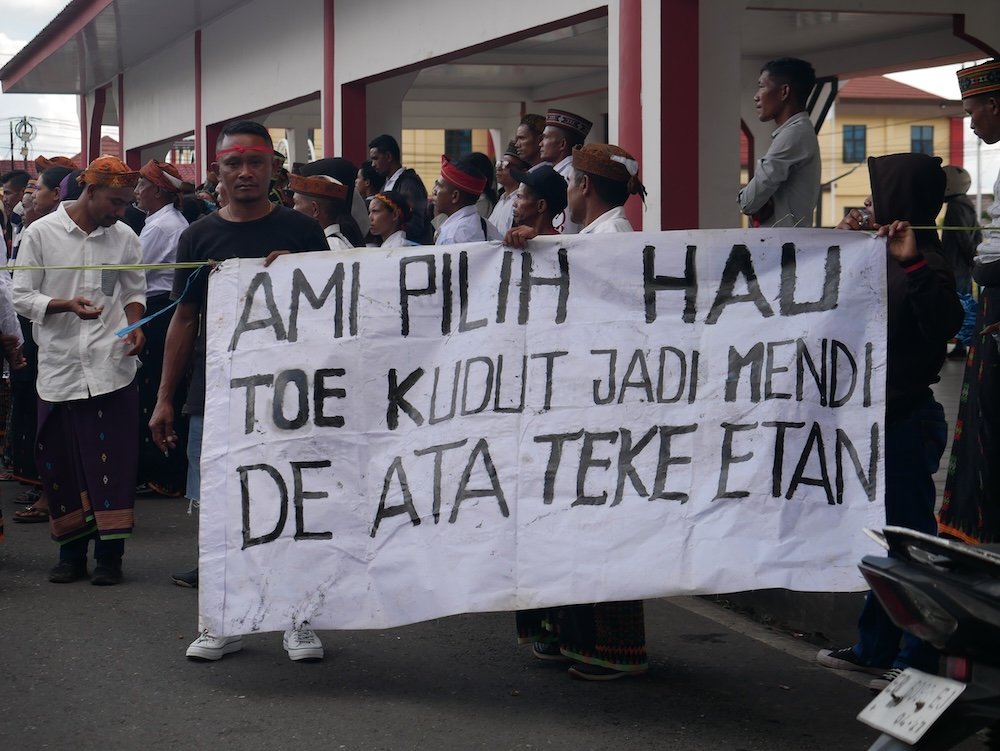 AMI PILIH HAU
TOE KUDUT JADI MENDI
DE ATA TEKE ETAN
04-27